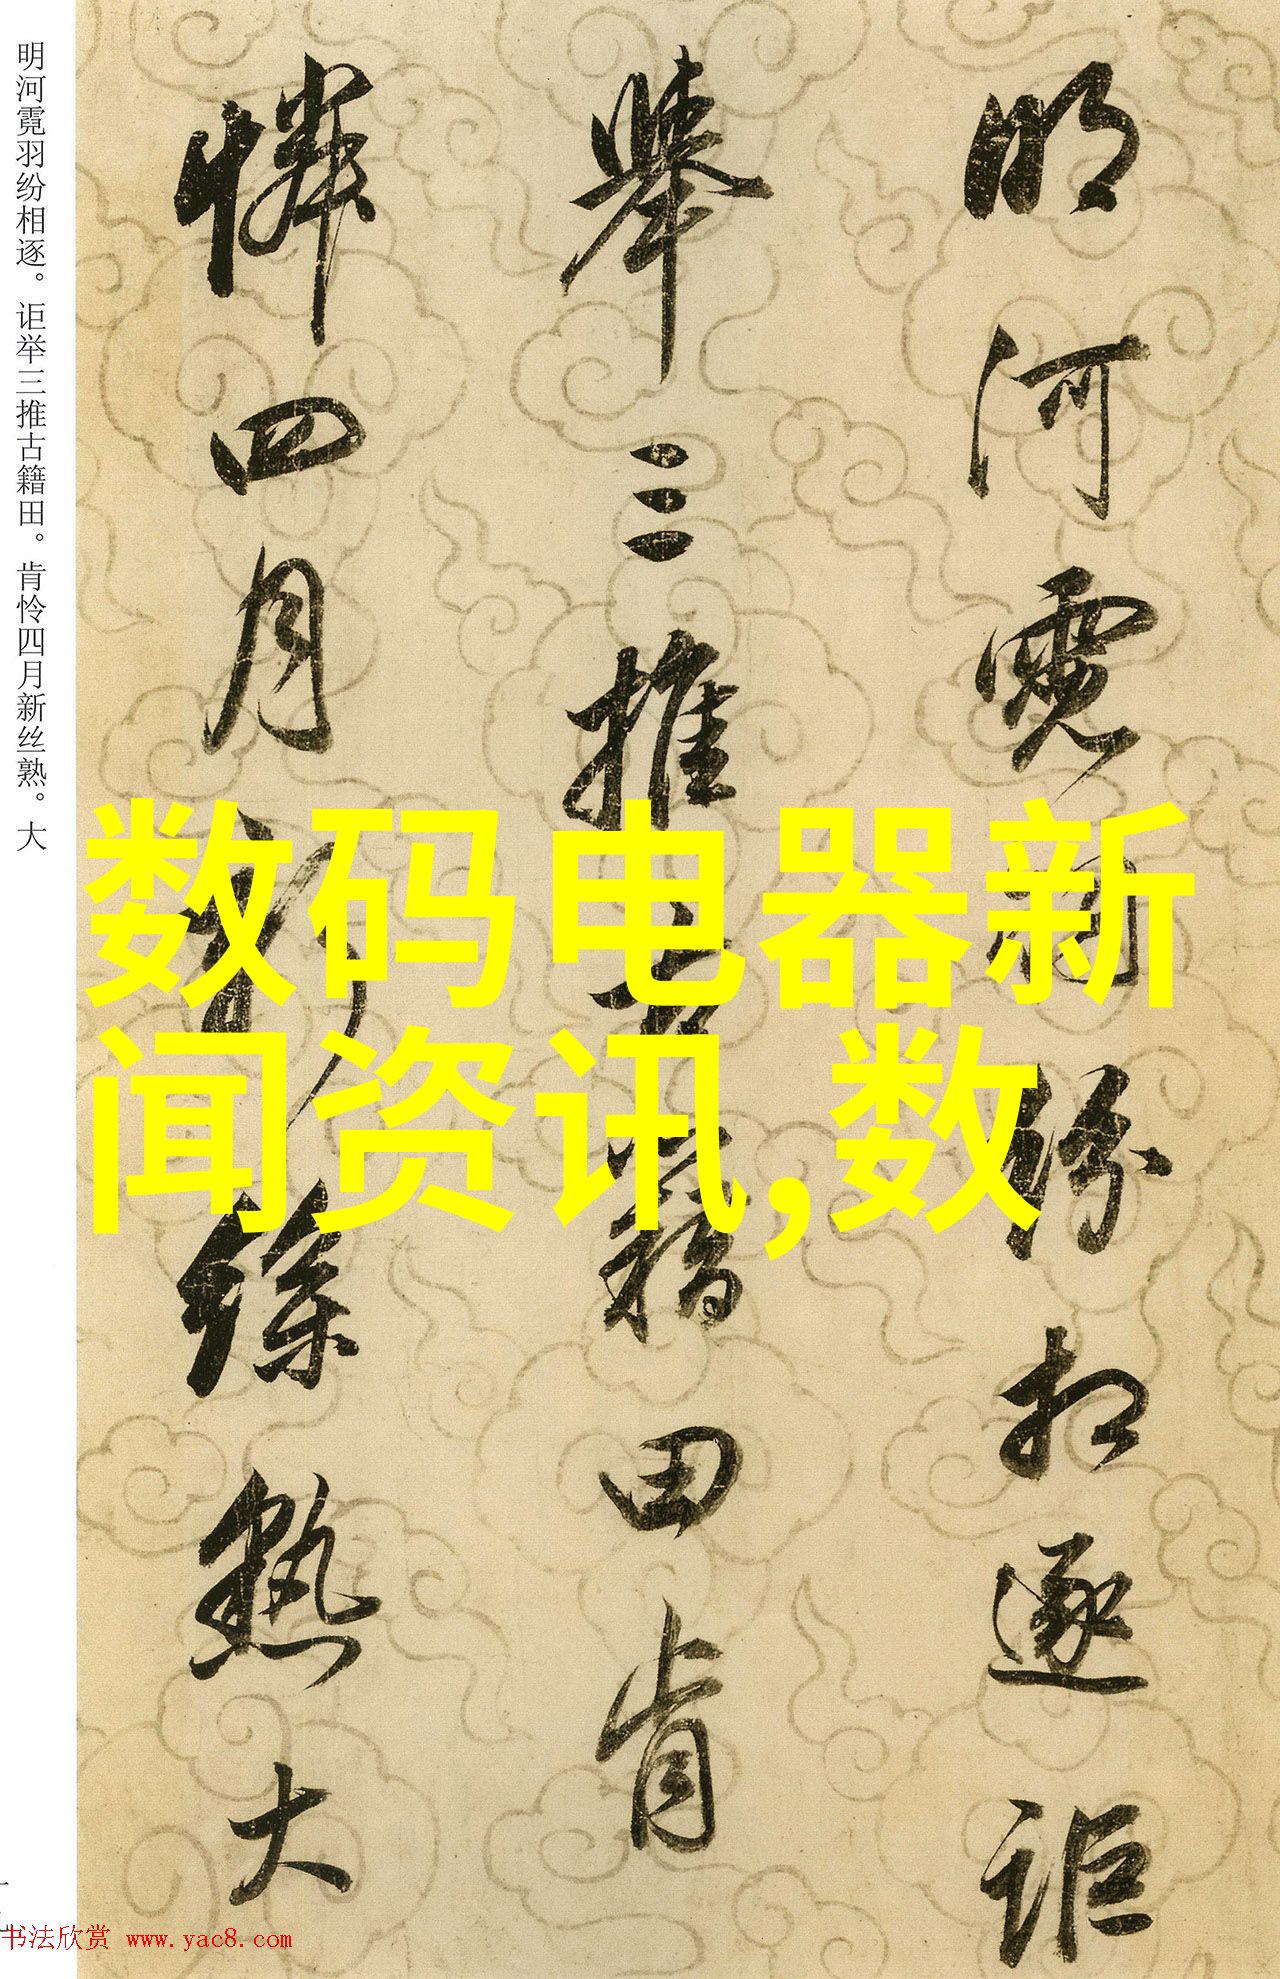 明河霓羽纷相逐。讵举三推古籍田。肯怜四月新丝熟。大
明河霓羽紛相逐詎
舉三推古籍田肯
憐四月新絲熟大
数码电器新
闻资讯,数
书法欣赏 www.yac8.com